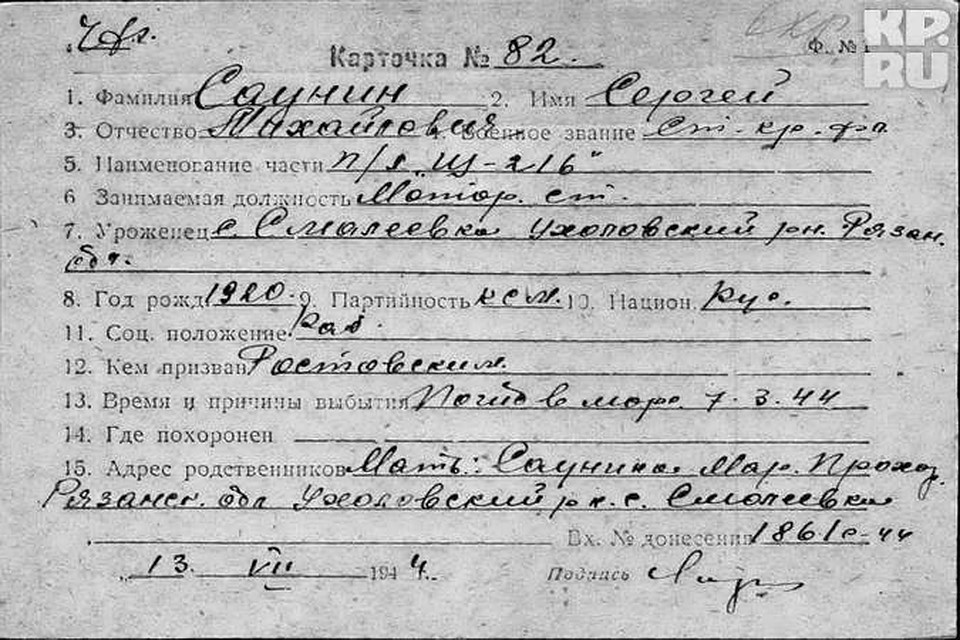 Ч.ф.
КР.
RU
Ф. №
Карточка № 82.
1. Фамилия Саунин 2. Имя Сергей
3. Отчество Михайлович 4. Военное звание Ст. кр. фл
5. Наименование части п/л „Щ-216"
6 Занимаемая должность Мотор. ст.
7. Уроженец с. Смалеевка Ухоловский рн. Рязан.
обл.
8. Год рожд 1920. 9. Партийность ксм. 10. Национ. Рус.
11. Соц. положение Раб.
12. Кем призван Ростовским.
13. Время и причины выбытия Погиб в море 7.3.44
14. Где похоронен
15. Адрес родственников Мать: Саунина Мар. Прохор.
Рязанск. обл Ухоловский р н. с. Смолеевка
Вх. № донесения 1861с-44
„ 13. VII 1944 Подпись